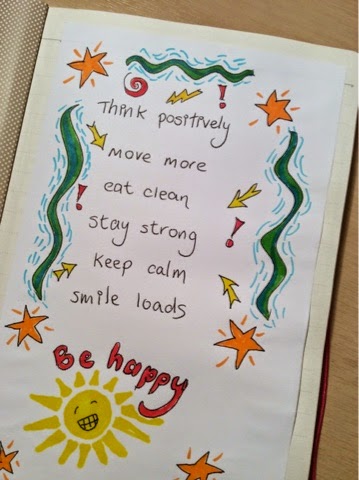 Think positively
move more
eat clean
stay strong
keep calm
smile loads
Be happy